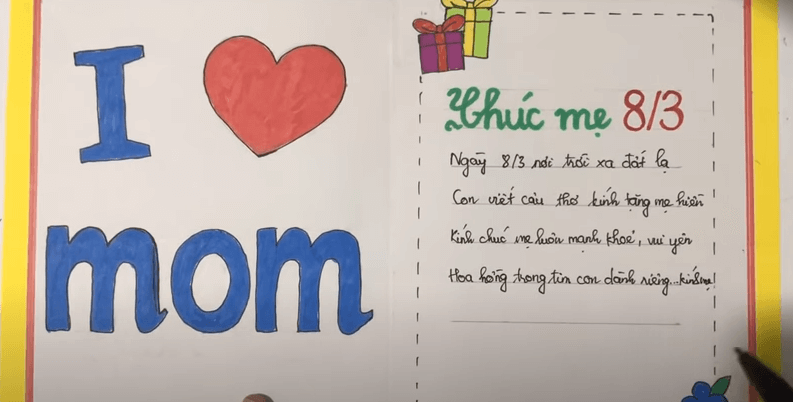 I ❤ mom
Chúc mẹ 8/3
Ngày 8/3 nơi trời xa đất lạ
Con viết câu thơ kính tặng mẹ hiền
Kính chúc mẹ luôn mạnh khoẻ, vui yên
Hoa hồng trong tim con dành riêng...kính mẹ!